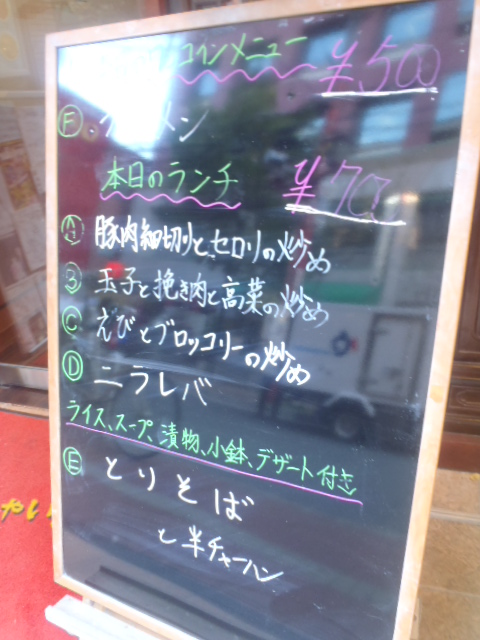 コインメニュー ¥500
Ⓕ メン
本日のランチ ¥700
Ⓐ 豚肉細切りとセロリの炒め
Ⓑ 玉子と挽き肉と高菜の炒め
Ⓒ えびとブロッコリーの炒め
Ⓓ ニラレバ
ライス、スープ、漬物、小鉢、デザート付き
Ⓔ とりそば
と半チャーハン